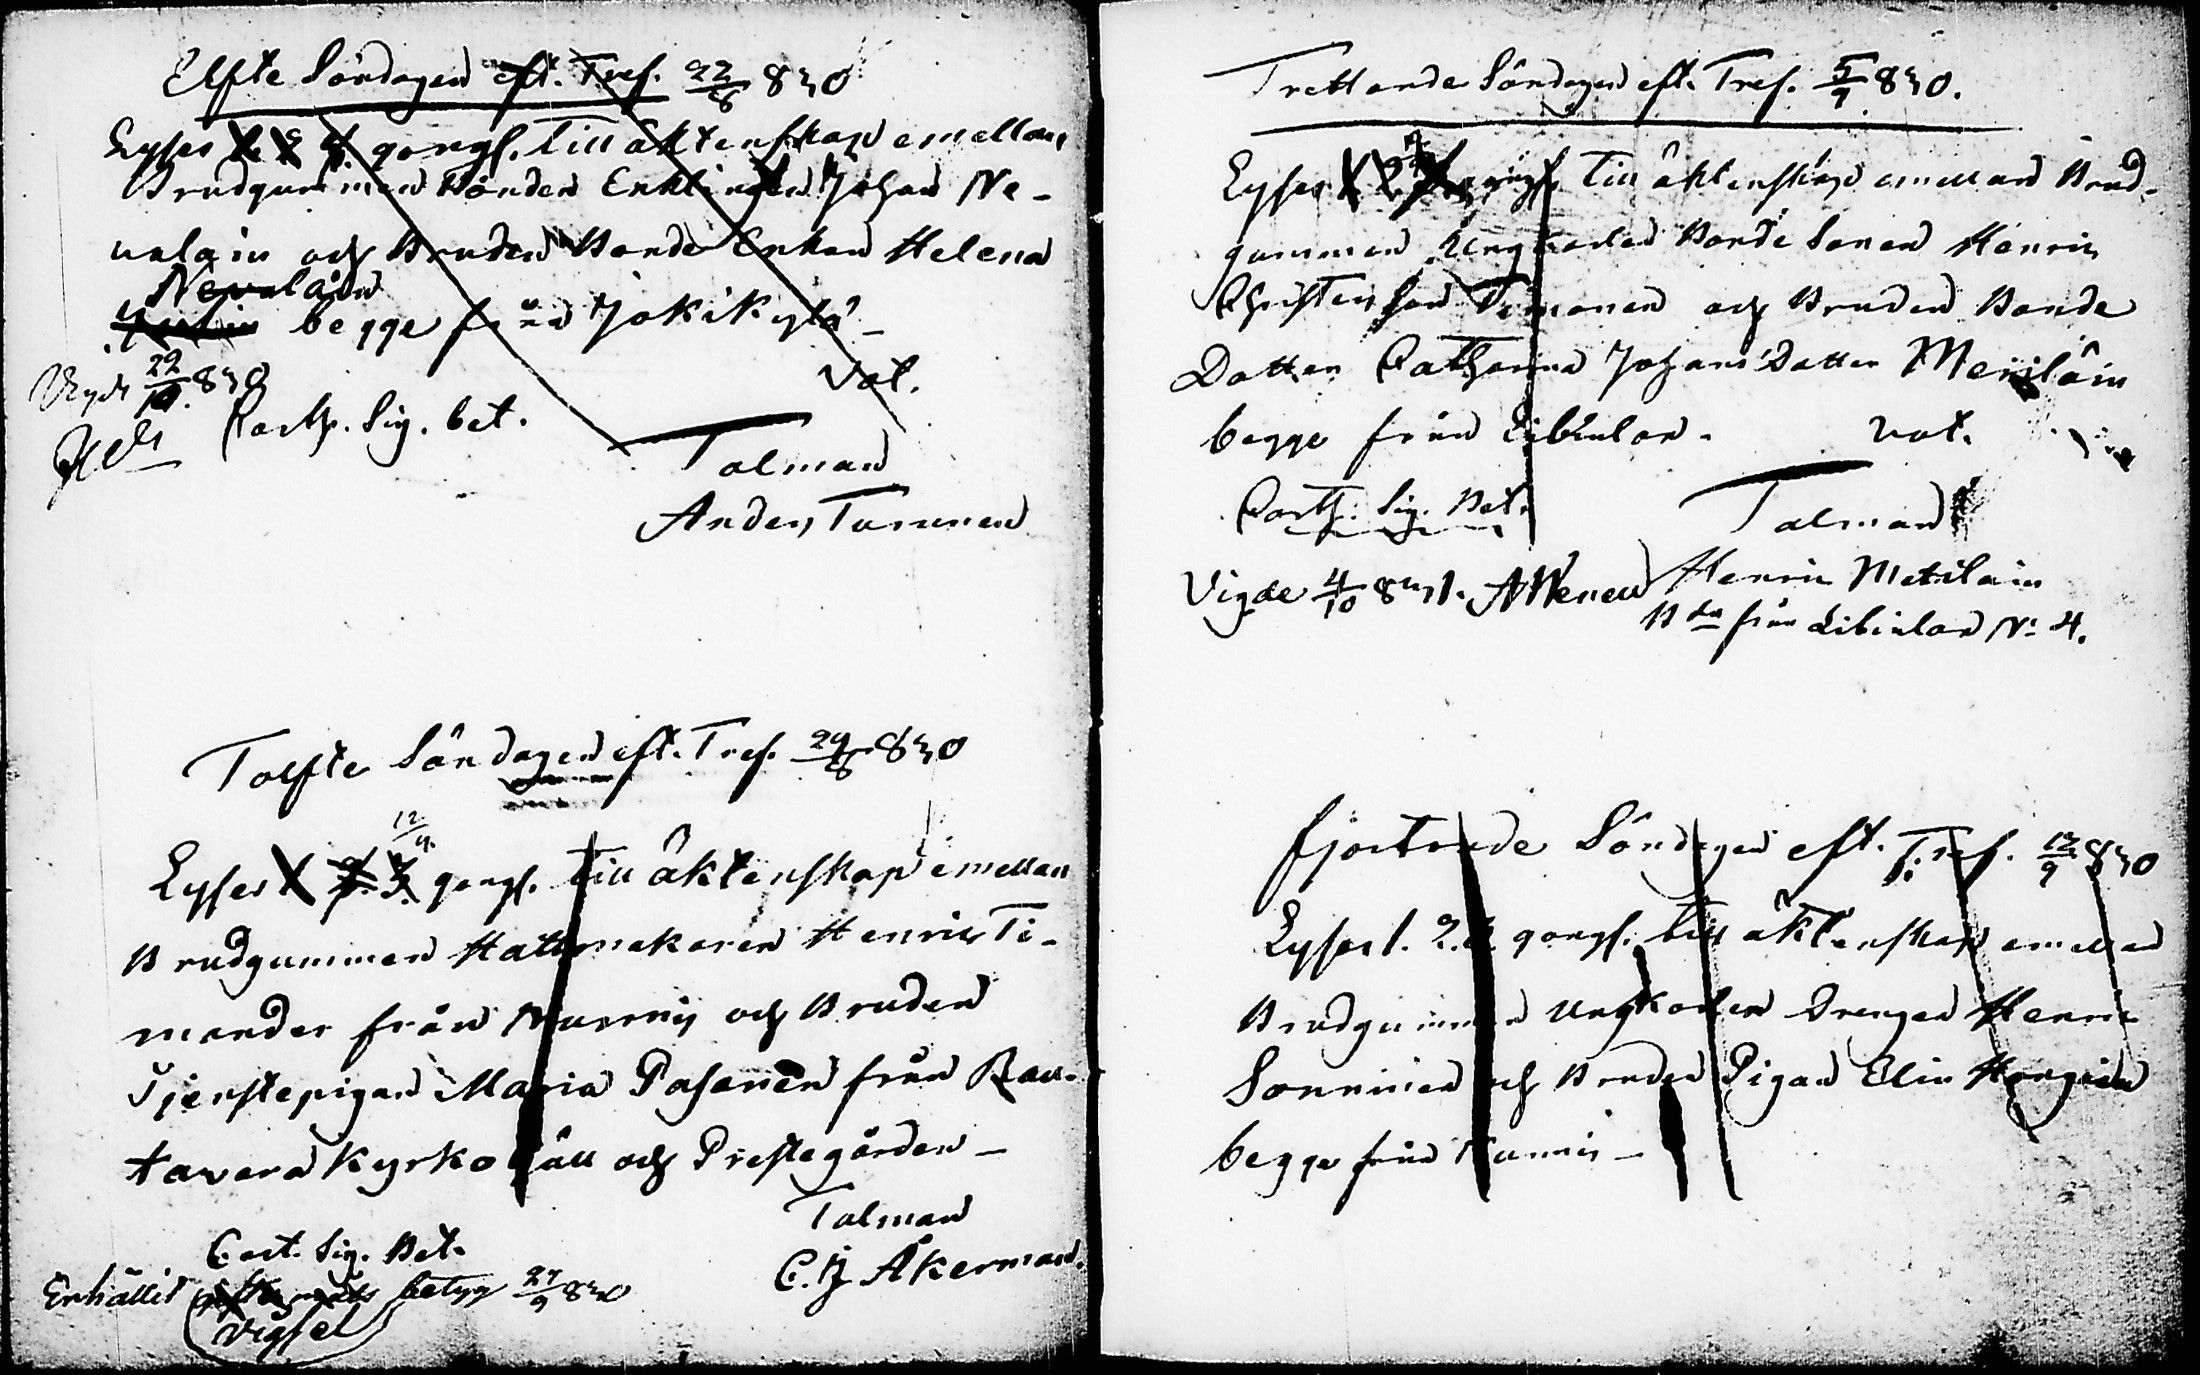 Elfte Söndagen eft. Tref. 22/8 830
Lyses 1. 2. 3. gongs. till äktenskap emellan
Brudgummen Bonden Enklingen Johan Ne-
valain och Bruden Bonde Enkan Helena
Nevalain
begge från Jokikylä -
Vigde 22/10. 830
Vot.
Copth. Sig. bet.
Talman
Anders Turunen
Tolfte Söndagen eft. Tref. 29/8 830
12/9.
Lyses 1 2. 3. gongs. till äktenskap emellan
Brudgummen Hattmakaren Henric Ti-
mander från Nurmis och Bruden
Tjenstepigan Maria Pasanen från Rau-
tavara Kyrkogäll och Prestegården -
Talman
C. J. Åkerman.
Cort. Sig. Bet.
Erhållit betyg 27/9 830
Vigsel
Trettonde Söndagen eft. Tref. 5/9 830.
Lyses 1 2 3 gongs till äktenskap emellan Brud-
gummen Ungkarlen Bonde Sonen Henric
Christersson Timonen och Bruden Bonde
Dotter Catharina Johans Dotter Meriläin
begge från Libinlax - vot.
Copth. Sig. Bet.
Talman
Henric Metsläin
Vigde 4/10 831. A Wenell
B de från Libinlax No 4.
fjortonde Söndagen eft. Tref. 12/9 830
Lyses 1. 2. 3. gongs. till äktenskap emellan
Brudgummen Ungkarlen Drengen Henric
Sonninen och Bruden Pigan Elin
begge från Nurmis -